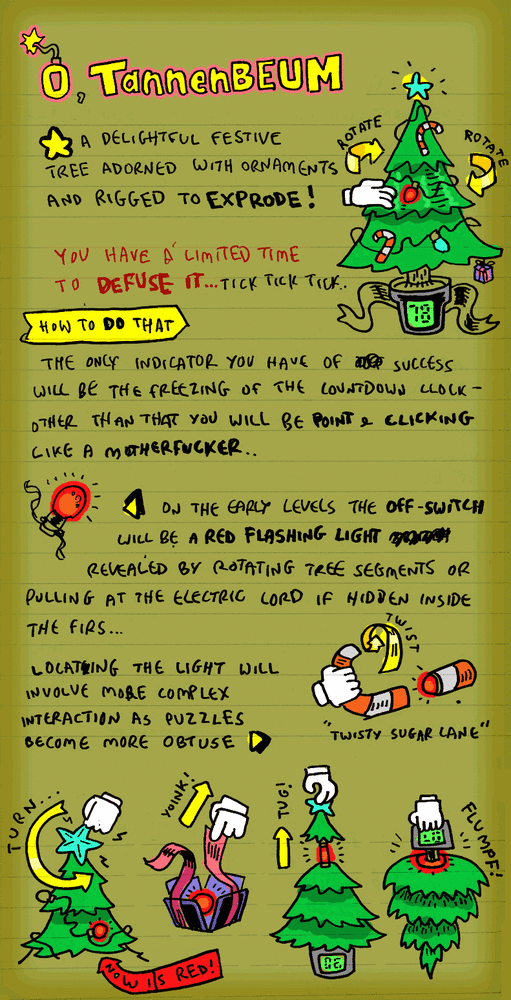 O, TannenBEUM
A DELIGHTFUL FESTIVE
TREE ADORNED WITH ORNAMENTS
AND RIGGED TO EXPRODE!
ROTATE
ROTATE
YOU HAVE A LIMITED TIME
TO DEFUSE IT...TICK TICK TICK..
HOW TO DO THAT
THE ONLY INDICATOR YOU HAVE OF SUCCESS
WILL BE THE FREEZING OF THE COUNTDOWN CLOCK-
OTHER THAN THAT YOU WILL BE POINT & CLICKING
LIKE A MOTHERFUCKER..
ON THE EARLY LEVELS THE OFF-SWITCH
WILL BE A RED FLASHING LIGHT
REVEALED BY ROTATING TREE SEGMENTS OR
PULLING AT THE ELECTRIC CORD IF HIDDEN INSIDE
THE FIRS...
LOCATING THE LIGHT WILL
INVOLVE MORE COMPLEX
INTERACTION AS PUZZLES
BECOME MORE OBTUSE
TWIST
"TWISTY SUGAR CANE"
TURN...
YOINK!
TUG!
FLUMPF!
NOW IS RED!